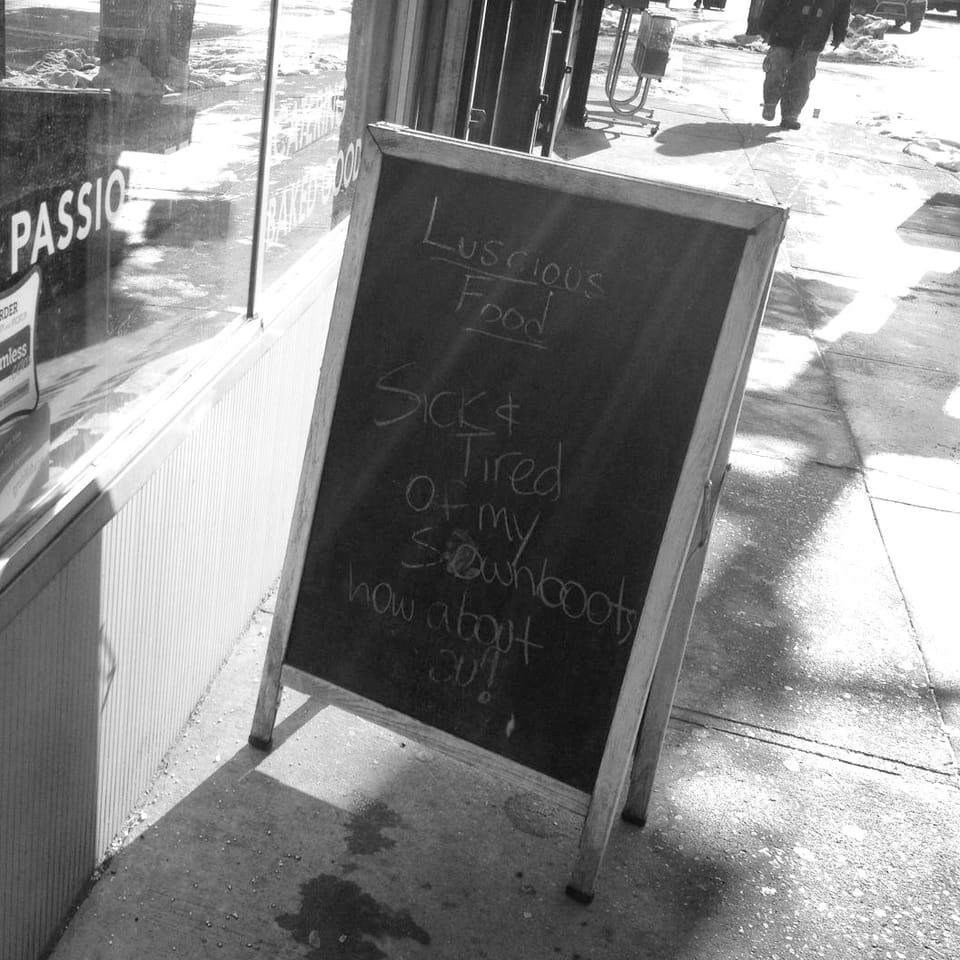 Luscious
Food
Sick &
Tired
of my
Sownboots
how about
su?
PASSIO
BAKED GOOD
RDER
mless